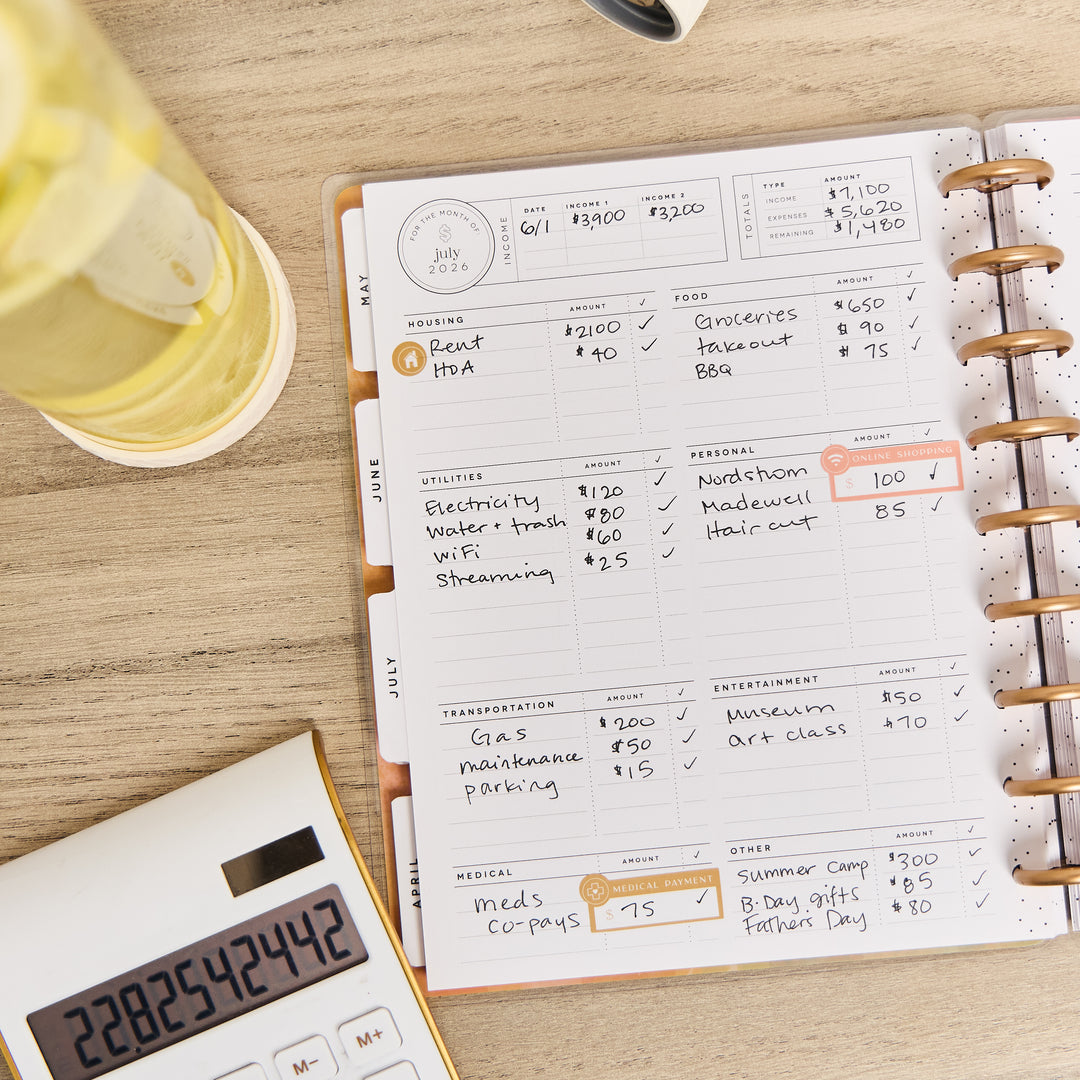 FOR THE MONTH OF:
$
july
2026
INCOME
DATE INCOME 1 INCOME 2
6/1 $3,900 $3200
TOTALS
TYPE AMOUNT
INCOME $7,100
EXPENSES $5,620
REMAINING $1,480
MAY
JUNE
JULY
APRIL
HOUSING AMOUNT ✓
Rent $2100 ✓
HOA $40 ✓
FOOD AMOUNT ✓
Groceries $650 ✓
takeout $90 ✓
BBQ $75 ✓
UTILITIES AMOUNT ✓
Electricity $120 ✓
Water + trash $80 ✓
WiFi $60 ✓
Streaming $25 ✓
PERSONAL AMOUNT ✓
ONLINE SHOPPING
Nordstrom $ 100 ✓
Madewell 85 ✓
Hair cut
TRANSPORTATION AMOUNT ✓
Gas $200 ✓
maintenance $50 ✓
parking $15 ✓
ENTERTAINMENT AMOUNT ✓
Museum $50 ✓
art class $70 ✓
MEDICAL AMOUNT ✓
MEDICAL PAYMENT
meds
co-pays $ 75 ✓
OTHER AMOUNT ✓
Summer Camp $300 ✓
B-Day gifts $85 ✓
Fathers Day $80 ✓
22.828542442
M- M+